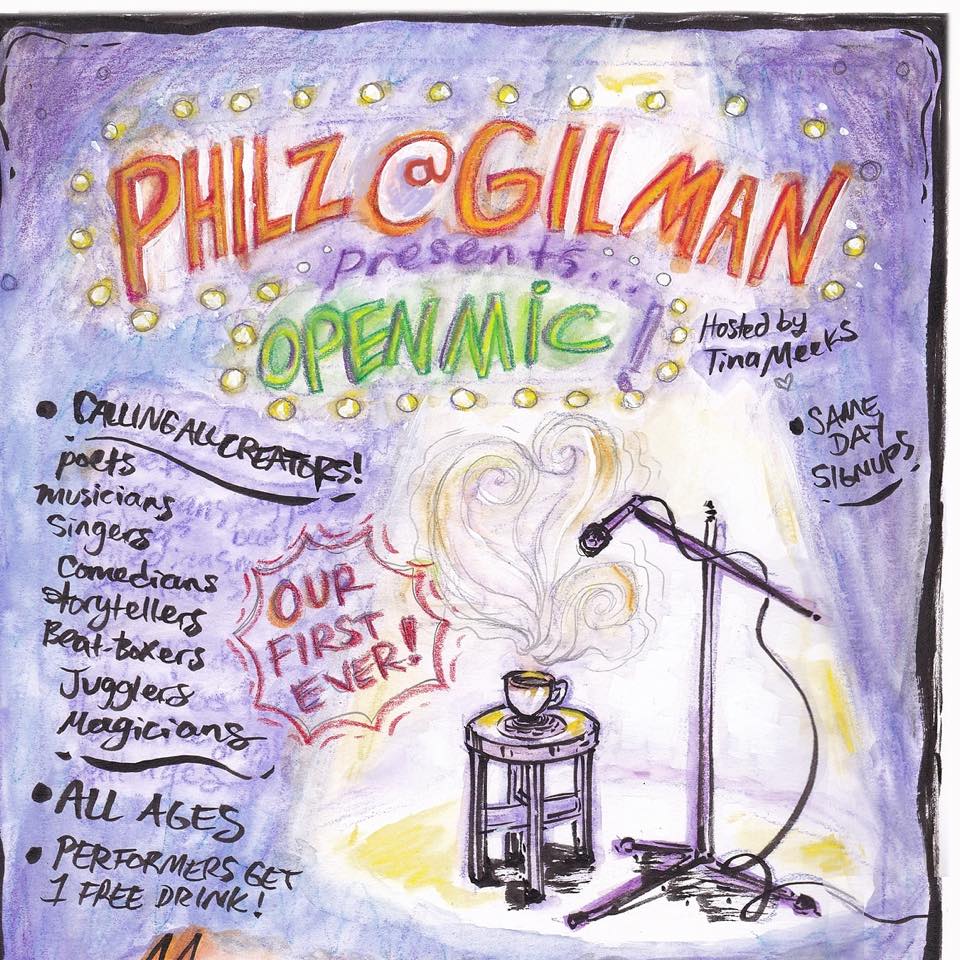 PHILZ @ GILMAN
presents...
OPEN MIC!
Hosted by
Tina Meeks
• CALLING ALL CREATORS!
poets
musicians
Singers
Comedians
storytellers
Beat-Boxers
Jugglers
Magicians
• SAME
DAY
SIGNUPS
OUR
FIRST
EVER!
• ALL AGES
• PERFORMERS GET
1 FREE DRINK!